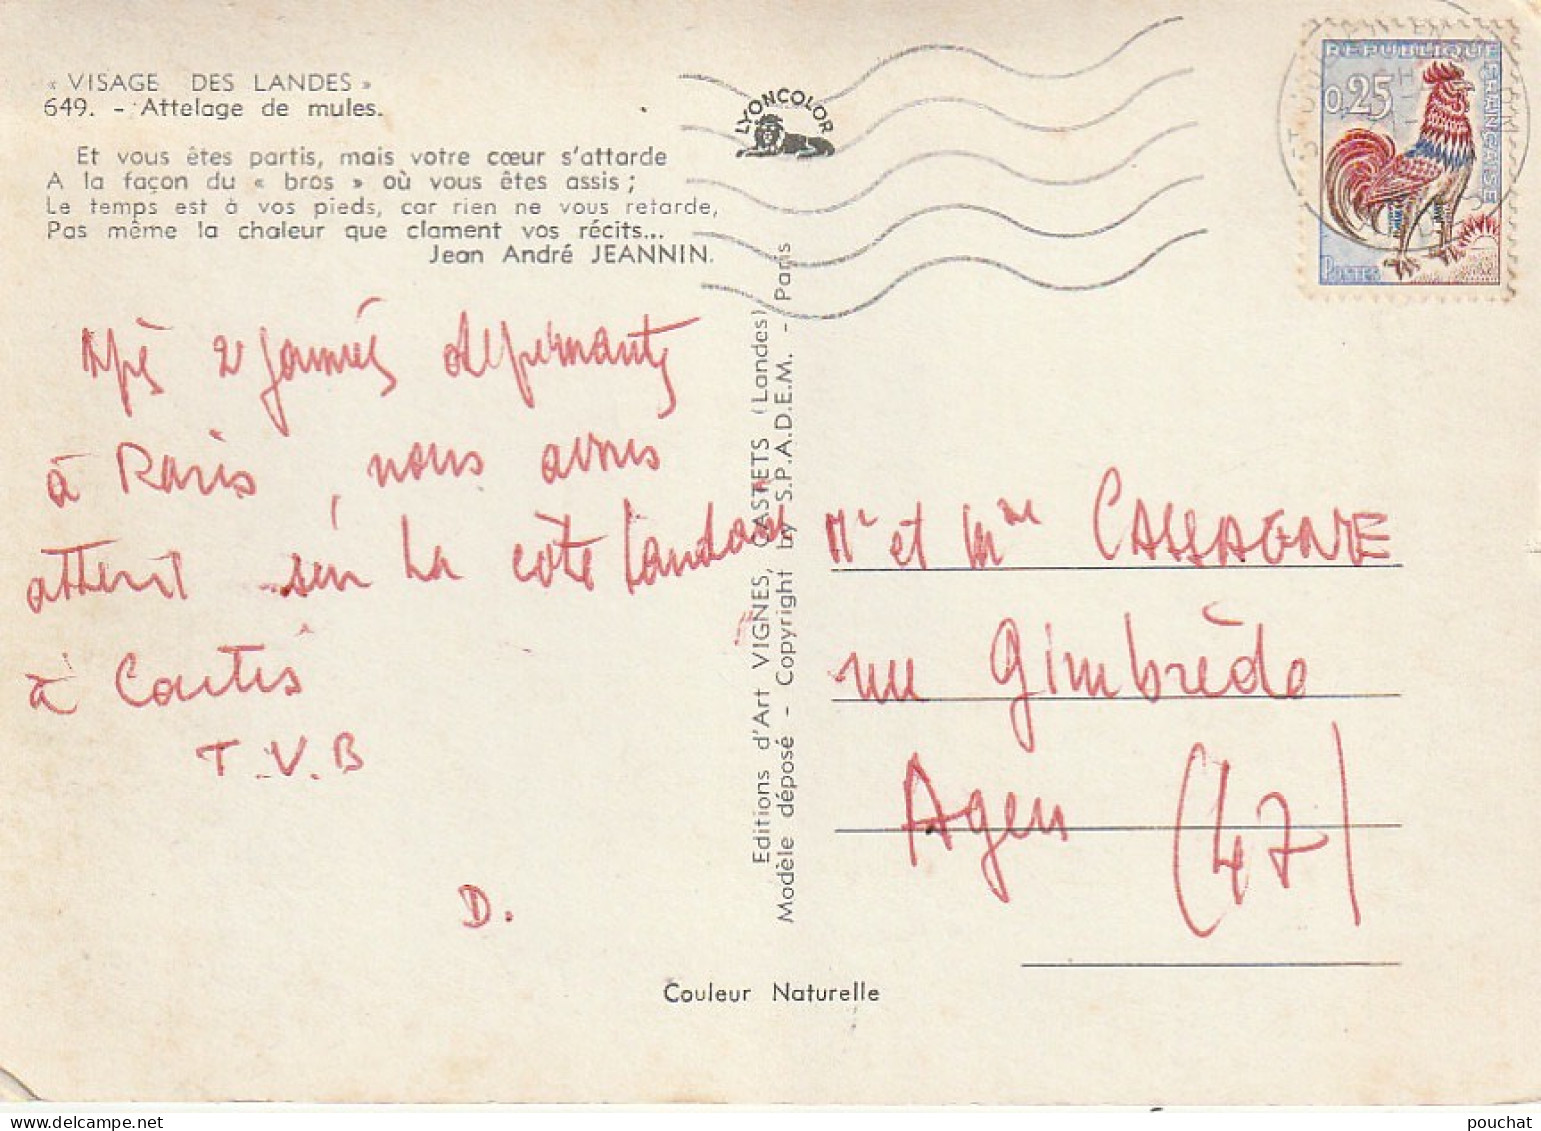 « VISAGE DES LANDES »
649. - Attelage de mules.
Et vous êtes partis, mais votre cœur s'attarde
A la façon du « bros » où vous êtes assis ;
Le temps est à vos pieds, car rien ne vous retarde,
Pas même la chaleur que clament vos récits...
Jean André JEANNIN.
LYONCOLOR
REPUBLIQUE FRANÇAISE
0,25
POSTES
après 2 journées
à Paris, nous avons
atterri sur la côte landaise
à Contis
T.V.B
D.
Editions d'Art VIGNES, CASTETS (Landes)
Modèle déposé - Copyright by S.P.A.D.E.M. - Paris
Mr et Mme CASSAGNE
rue Gimbrède
Agen (47)
Couleur Naturelle
pouchat